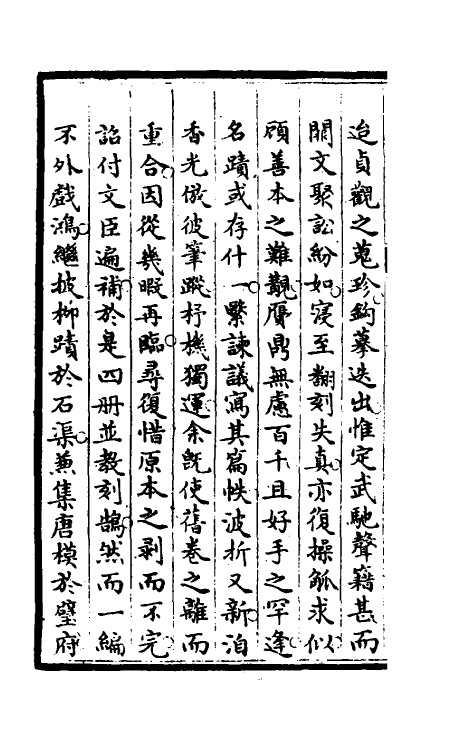 迨貞觀之蒐珍鈎摹迭出惟定武馳聲籍甚而
闕文聚訟紛如寖至翻刻失真亦復操觚求似
顧善本之難覯贗鼎無慮百千且好手之罕逢
名蹟或存什一繄諫議寫其篇帙波折又新洎
香光倣彼筆蹤杼機獨運余既使舊卷之離而
重合因從幾暇再臨尋復惜原本之剥而不完
詔付文臣遍補於是四册並教刻鵠然而一編
不外戲鴻繼披柳蹟於石渠兼集唐模於璧府